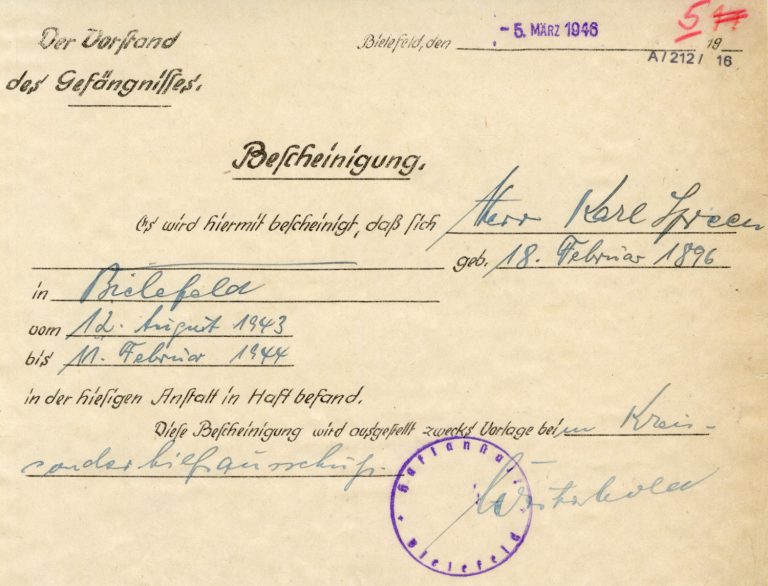 Der Vorstand
des Gefängnisses.
Bielefeld, den - 5. MÄRZ 1946 19
5
A / 212 / 16
Bescheinigung.
Es wird hiermit bescheinigt, daß sich Herr Karl Spreen
geb. 18. Februar 1896
in Bielefeld
vom 12. August 1943
bis 11. Februar 1944
in der hiesigen Anstalt in Haft befand.
Diese Bescheinigung wird ausgestellt zwecks Vorlage beim Kreis-
sonderhilfsausschuß.
Haftanstalt
Bielefeld